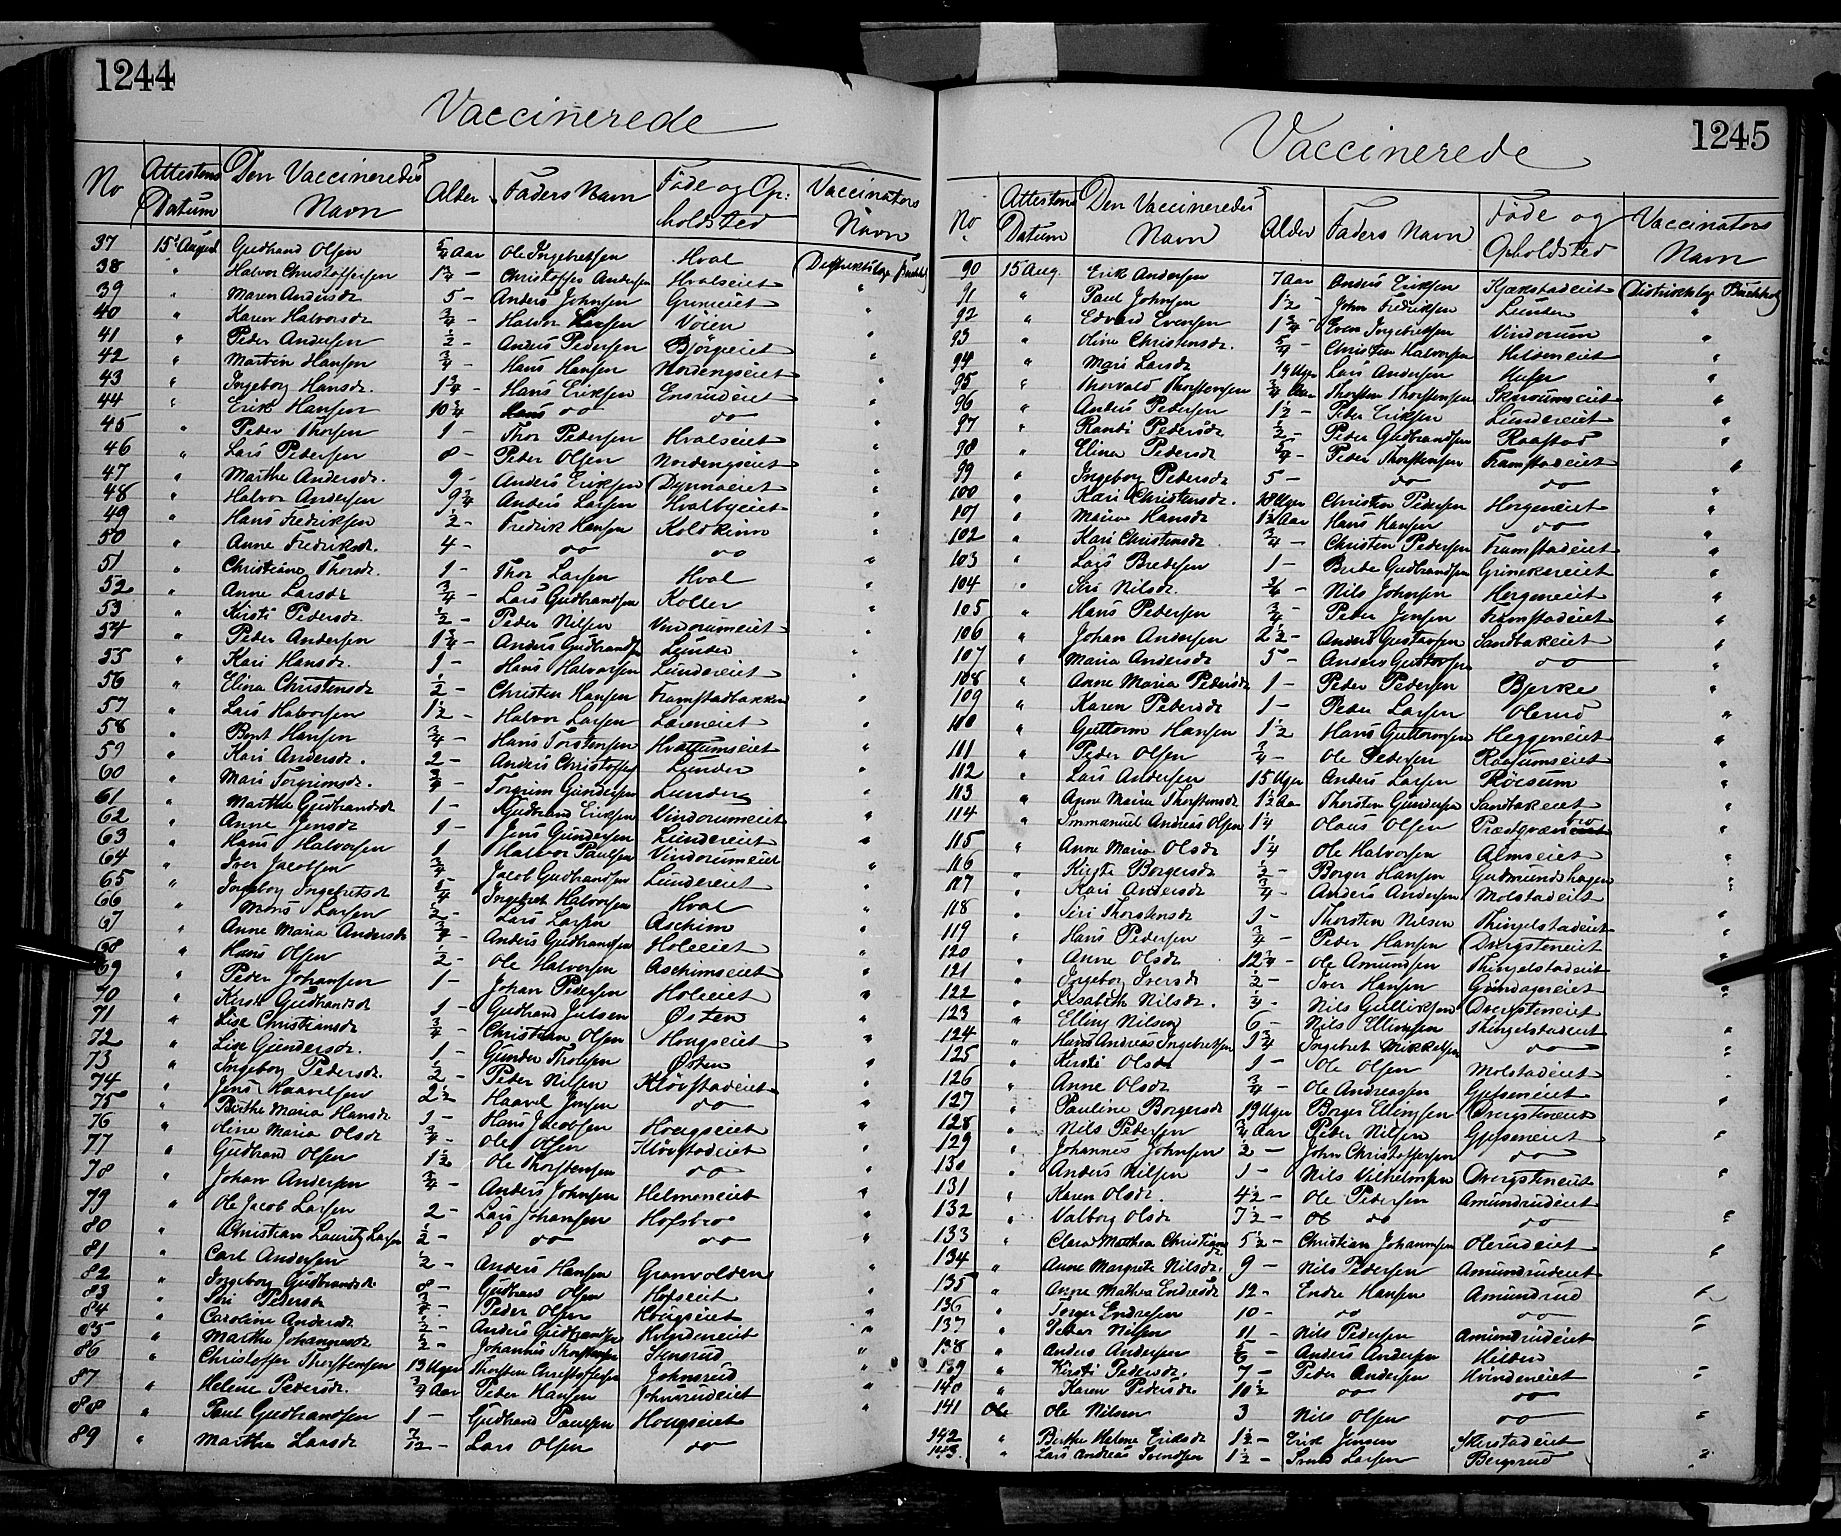 1244
Vaccinerede
No Attestens Datum Den Vaccineredes Navn Alder Faders Navn Føde og Op-holdsted Vaccinators Navn
37 15 August Gudbrand Olsen 5/4 Aar Ole Ingebretsen Hval Distriktslæge Buchholz
38 " Halvor Christoffersen 1 3/4 - Christoffer Andersen Hvalseiet "
39 " Maren Andersdr 5 - Anders Johnsen Grimeiet "
40 " Karen Halvorsdr 3/4 - Halvor Hansen Vöien "
41 " Peder Andersen 1/2 - Anders Pedersen Bjørgeeiet "
42 " Martin Hansen 3/4 - Hans Hansen Nordengseiet "
43 " Ingeborg Hansdr. 1 3/4 - Hans Eriksen Ensrudeiet "
44 " Erik Hansen 10 3/4 Hans do do "
45 " Peder Thorsen 1 - Thor Pedersen Hvalseiet "
46 " Lars Pedersen 8 - Peder Olsen Nordengseiet "
47 " Marthe Andersdr. 9 - Anders Eriksen Dynnaeiet "
48 " Halvor Andersen 9 3/4 Anders Larsen Hvalbyeiet "
49 " Hans Fredriksen 1/2 - Fredrik Hansen Koldkinn "
50 " Anne Fredriksdr. 4 - do do "
51 " Christiane Thorsdr. 1 - Thor Larsen Hval "
52 " Anne Larsdr 3/4 - Lars Gudbrandsen Koller "
53 " Kirsti Pedersdr 1/2 - Peder Nilsen Vindorumeiet "
54 " Peder Andersen 1 3/4 - Anders Gudbrandsen Lunder "
55 " Kari Hansdr. 1 - Hans Halvorsen Lundereiet "
56 " Elina Christensdr 1/2 - Christen Hansen Framstadbakken "
57 " Lars Halvorsen 1 1/2 - Halvor Larsen "
58 " Bent Hansen 3/4 - Hans Torstensen Hvattumseiet "
59 " Kari Andersdr. 2 - Anders Christoffers Lunder "
60 " Mari Torgrimsdr. 3/4 - Torgrim Gundersen Lunder "
61 " Marthe Gudbrandsdr 1 - Gudbrand Eriksen Vindorumeiet "
62 " Anne Jensdr 1 - Jens Gundersen Lundereiet "
63 " Hans Halvorsen 1 Halvor Paulsen Vindorumeiet "
64 " Iver Jacobsen 3/4 Jacob Gudbrandsen Lundereiet "
65 " Ingeborg Ingebretsdr 5/4 Ingebret Halvorsen Hval "
66 " Mons Larsen 2 - Lars Larsen Aschim "
67 " Anne Maria Andersdr 3/4 - Anders Gudbrandsen Holeeiet "
68 " Hans Olsen 1/2 - Ole Halvorsen Aschimseiet "
69 " Peder Johansen 1 - Johan Pedersen Holeeiet "
70 " Kirsti Gudbrandsdr 1 - Gudbrand Julsen Østen "
71 " Lise Christiansdr 3/4 - Christian Olsen Hougseiet "
72 " Lise Gundersdr. 1 - Gunder Tholfsen Østen "
73 " Ingeborg Pedersdr. 1/2 - Peder Nilsen Kløvstadeiet "
74 " Jens Haavelsen 2 1/2 Haavel Jensen do "
75 " Berthe Maria Hansdr 1 - Hans Jacobsen Hougseiet "
76 " Oline Maria Olsdr 3/4 - Ole Olsen Kløvstadeiet "
77 " Gudbrand Olsen 1 1/2 Ole Thorstensen do "
78 " Johan Andersen 3/4 - Anders Johnsen Helmeneiet "
79 " Ole Jacob Larsen 2 - Lars Johansen Hofsbro "
80 " Christian Lauritz Larsen 1/2 - do do "
81 " Carl Andersen 1/2 - Anders Hansen Granvolden "
82 " Ingeborg Gudbrandsdr 8 - Gudbrand Olsen Hofseiet "
83 " Siri Pedersdr 3/4 - Peder Olsen Hougseiet "
84 " Caroline Andersdr 1/2 - Anders Gudbrandsen Hvindeneiet "
85 " Marthe Johannesdr 1/2 - Johannes Thorstensen Sensrud "
86 " Christoffer Thorstensen 13 Uger Thorsten Christoffersen Johnsrud "
87 " Helene Pedersdr. 3/4 Aar Peder Hansen Johnsrudeiet "
88 " Paul Gudbrandsen 1 - Gudbrand Paulsen Hougseiet "
89 " Marthe Larsdr 7/12 - Lars Olsen do
1245
Vaccinerede
No Attestens Datum Den Vaccineredes Navn Alder Faders Navn Føde og Opholdsted Vaccinators Navn
90 15 Aug. Erik Andersen 7 Aar Anders Eriksen Kjækstadeiet Distriktslæge Buchholz
91 " Paul Johnsen 1 1/2 - John Fredriksen Lunder "
92 " Edvard Evensen 1 3/4 - Even Ingebriksen Vindorum "
93 " Oline Christensdr. 5/4 - Christen Halvorsen Helmeneiet "
94 " Mari Larsdr 19 Uger Lars Andersen "
95 " Thorvald Thorstensen 3/4 Aar Thorsten Thorstensen Skiaumseiet "
96 " Anders Pedersen 1 1/2 - Peder Eriksen Lundereiet "
97 " Randi Pedersdr 1/2 - Peder Gudbrandsen Raastad "
98 " Elina Pedersdr 5/4 - Peder Thorstensen Framstadeiet "
99 " Ingeborg Pedersdr 5 - do do
100 " Kari Christensdr. 18 Uger Christen Pedersen Horgeneiet "
101 " Maren Hansdr 1 1/2 Aar Hans Hansen do "
102 " Kari Christensdr 3/4 - Christen Pedersen Framstadeiet "
103 " Lars Bredesen 1 - Brede Gudbrandsen Grinakereiet "
104 " Siri Nilsdr. 3/4 - Nils Johnsen Horgeneiet "
105 " Hans Pedersen 3/4 Peder Jensen Framstadeiet "
106 " Johan Andersen 2 1/2 - Anders Gustavsen Sandbakeiet "
107 " Maria Andersdr 5 - Anders Gustavsen do "
108 " Anne Maria Pedersdr 1 - Peder Pedersen Bjerke "
109 " Karen Pedersdr 1 - Peder Larsen Olerud "
110 " Guttorm Hansen 1 1/2 Hans Guttormsen Heggeneiet "
111 " Peder Olsen 3/4 - Ole Pedersen Raasumseiet "
112 " Lars Andersen 15 Uger Anders Larsen Røisum "
113 " Anne Maria Thorstensdr 1 1/2 Aar Thorsten Gundersen Sandbakeiet "
114 " Immanuel Andreas Olsen 1 1/4 Olaus Olsen "
115 " Anne Maria Olsdr 1 1/4 Ole Halvorsen Almseiet "
116 " Kirsti Borgersdr 1/2 - Borger Hansen Gudmundshagen "
117 " Kari Andersdr 3/4 - Anders Andersen Molstadeiet "
118 " Siri Thorstensdr 1 - Thorsten Nilsen Thingelstadeiet "
119 " Hans Pedersen 3/4 - Peder Hansen Dvergsteneiet "
120 " Anne Olsdr 12 3/4 - Ole Amundsen Thingelstadeiet "
121 " Ingeborg Iversdr 1/2 - Iver Hansen "
122 " Lisabeth Nilsdr. 1/4 - Nils Gulliksen Dvergsteneiet "
123 " Elling Nilsen 6 - Nils Ellingsen Thingelstadeiet "
124 " Hans Andreas Ingebretsen 1 3/4 Ingebret Mikkelsen do "
125 " Kirsti Olsdr 1 - Ole Olsen Molstadeiet "
126 " Anne Olsdr 3/4 - Ole Andreassen Gjefseneiet "
127 " Pauline Borgersdr 19 Uger Borger Ellingsen Dvergsteneiet "
128 " Nils Pedersen 3/4 Aar Peder Nilsen Gjefseneiet "
129 " Johannes Johnsen 2 - John Christoffersen do
130 " Anders Nilsen 1 - Nils Vilhelmsen Dvergsteneiet "
131 " Karen Olsdr. 4 1/2 - Ole Pedersen Amundrudeiet
132 " Valborg Olsdr 7 1/2 - Ole do do "
133 " Clara Mathea Christiansdr 5 1/2 - Christian Johannsen Olerudeiet "
134 " Anne Margrete Nilsdr. 9 - Nils Pedersen Amundrudeiet
135 " Anne Mathea Endresdr 12 - Endre Hansen Amundrud "
136 " Torger Endresen 10 - do do "
137 " Peder Nilsen 11 - Nils Pedersen Amundrudeiet
138 " Anders Andersen 5/6 - Anders Andersen Hilden
139 " Kirsti Pedersdr. 7 - Peder Andersen Hvindeneiet "
140 " Karen Pedersdr 10 1/2 do do
141 Ole Ole Nilsen 3 Nils Olsen do "
142 " Berthe Helene Eriksdr 1 1/2 - Erik Jensen
143. " Lars Andreas Svendsen 1 1/2 - Svend Larsen Bergsrud "